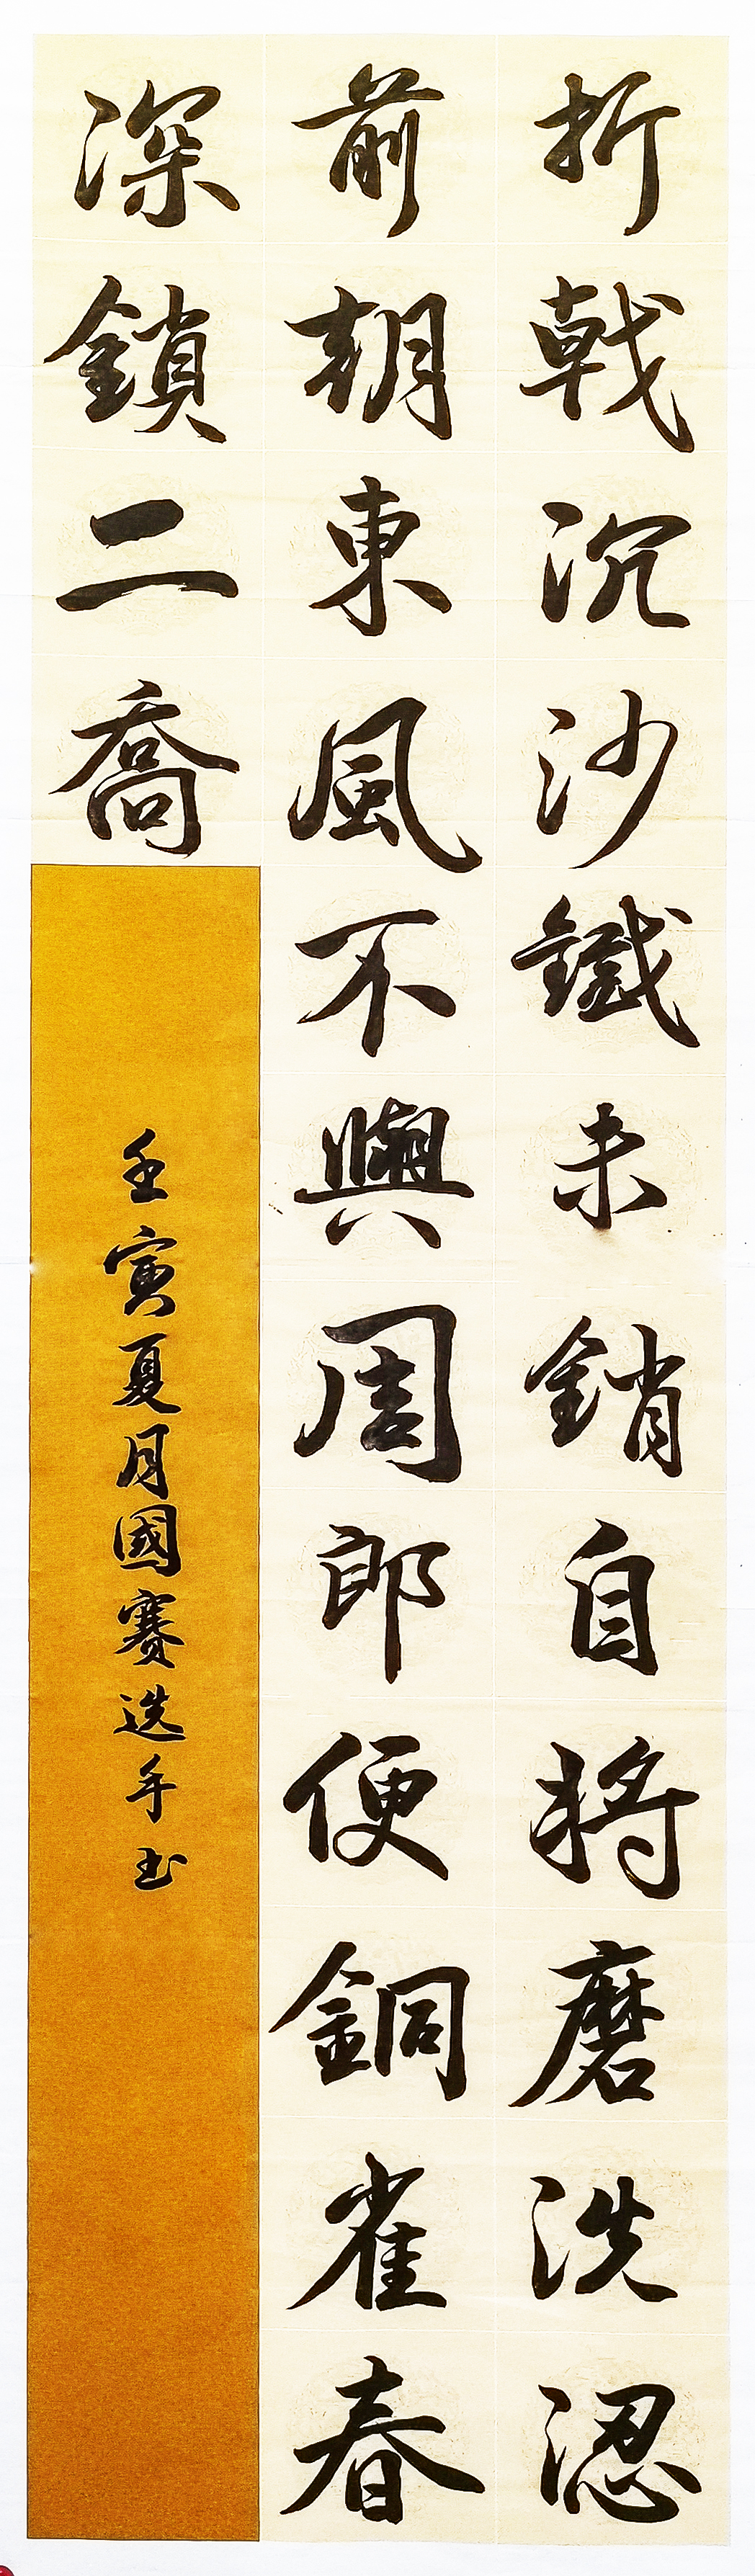 折戟沉沙鐵未銷自將磨洗認
前朝東風不與周郎便銅雀春
深鎖二喬
壬寅夏月國賽选手